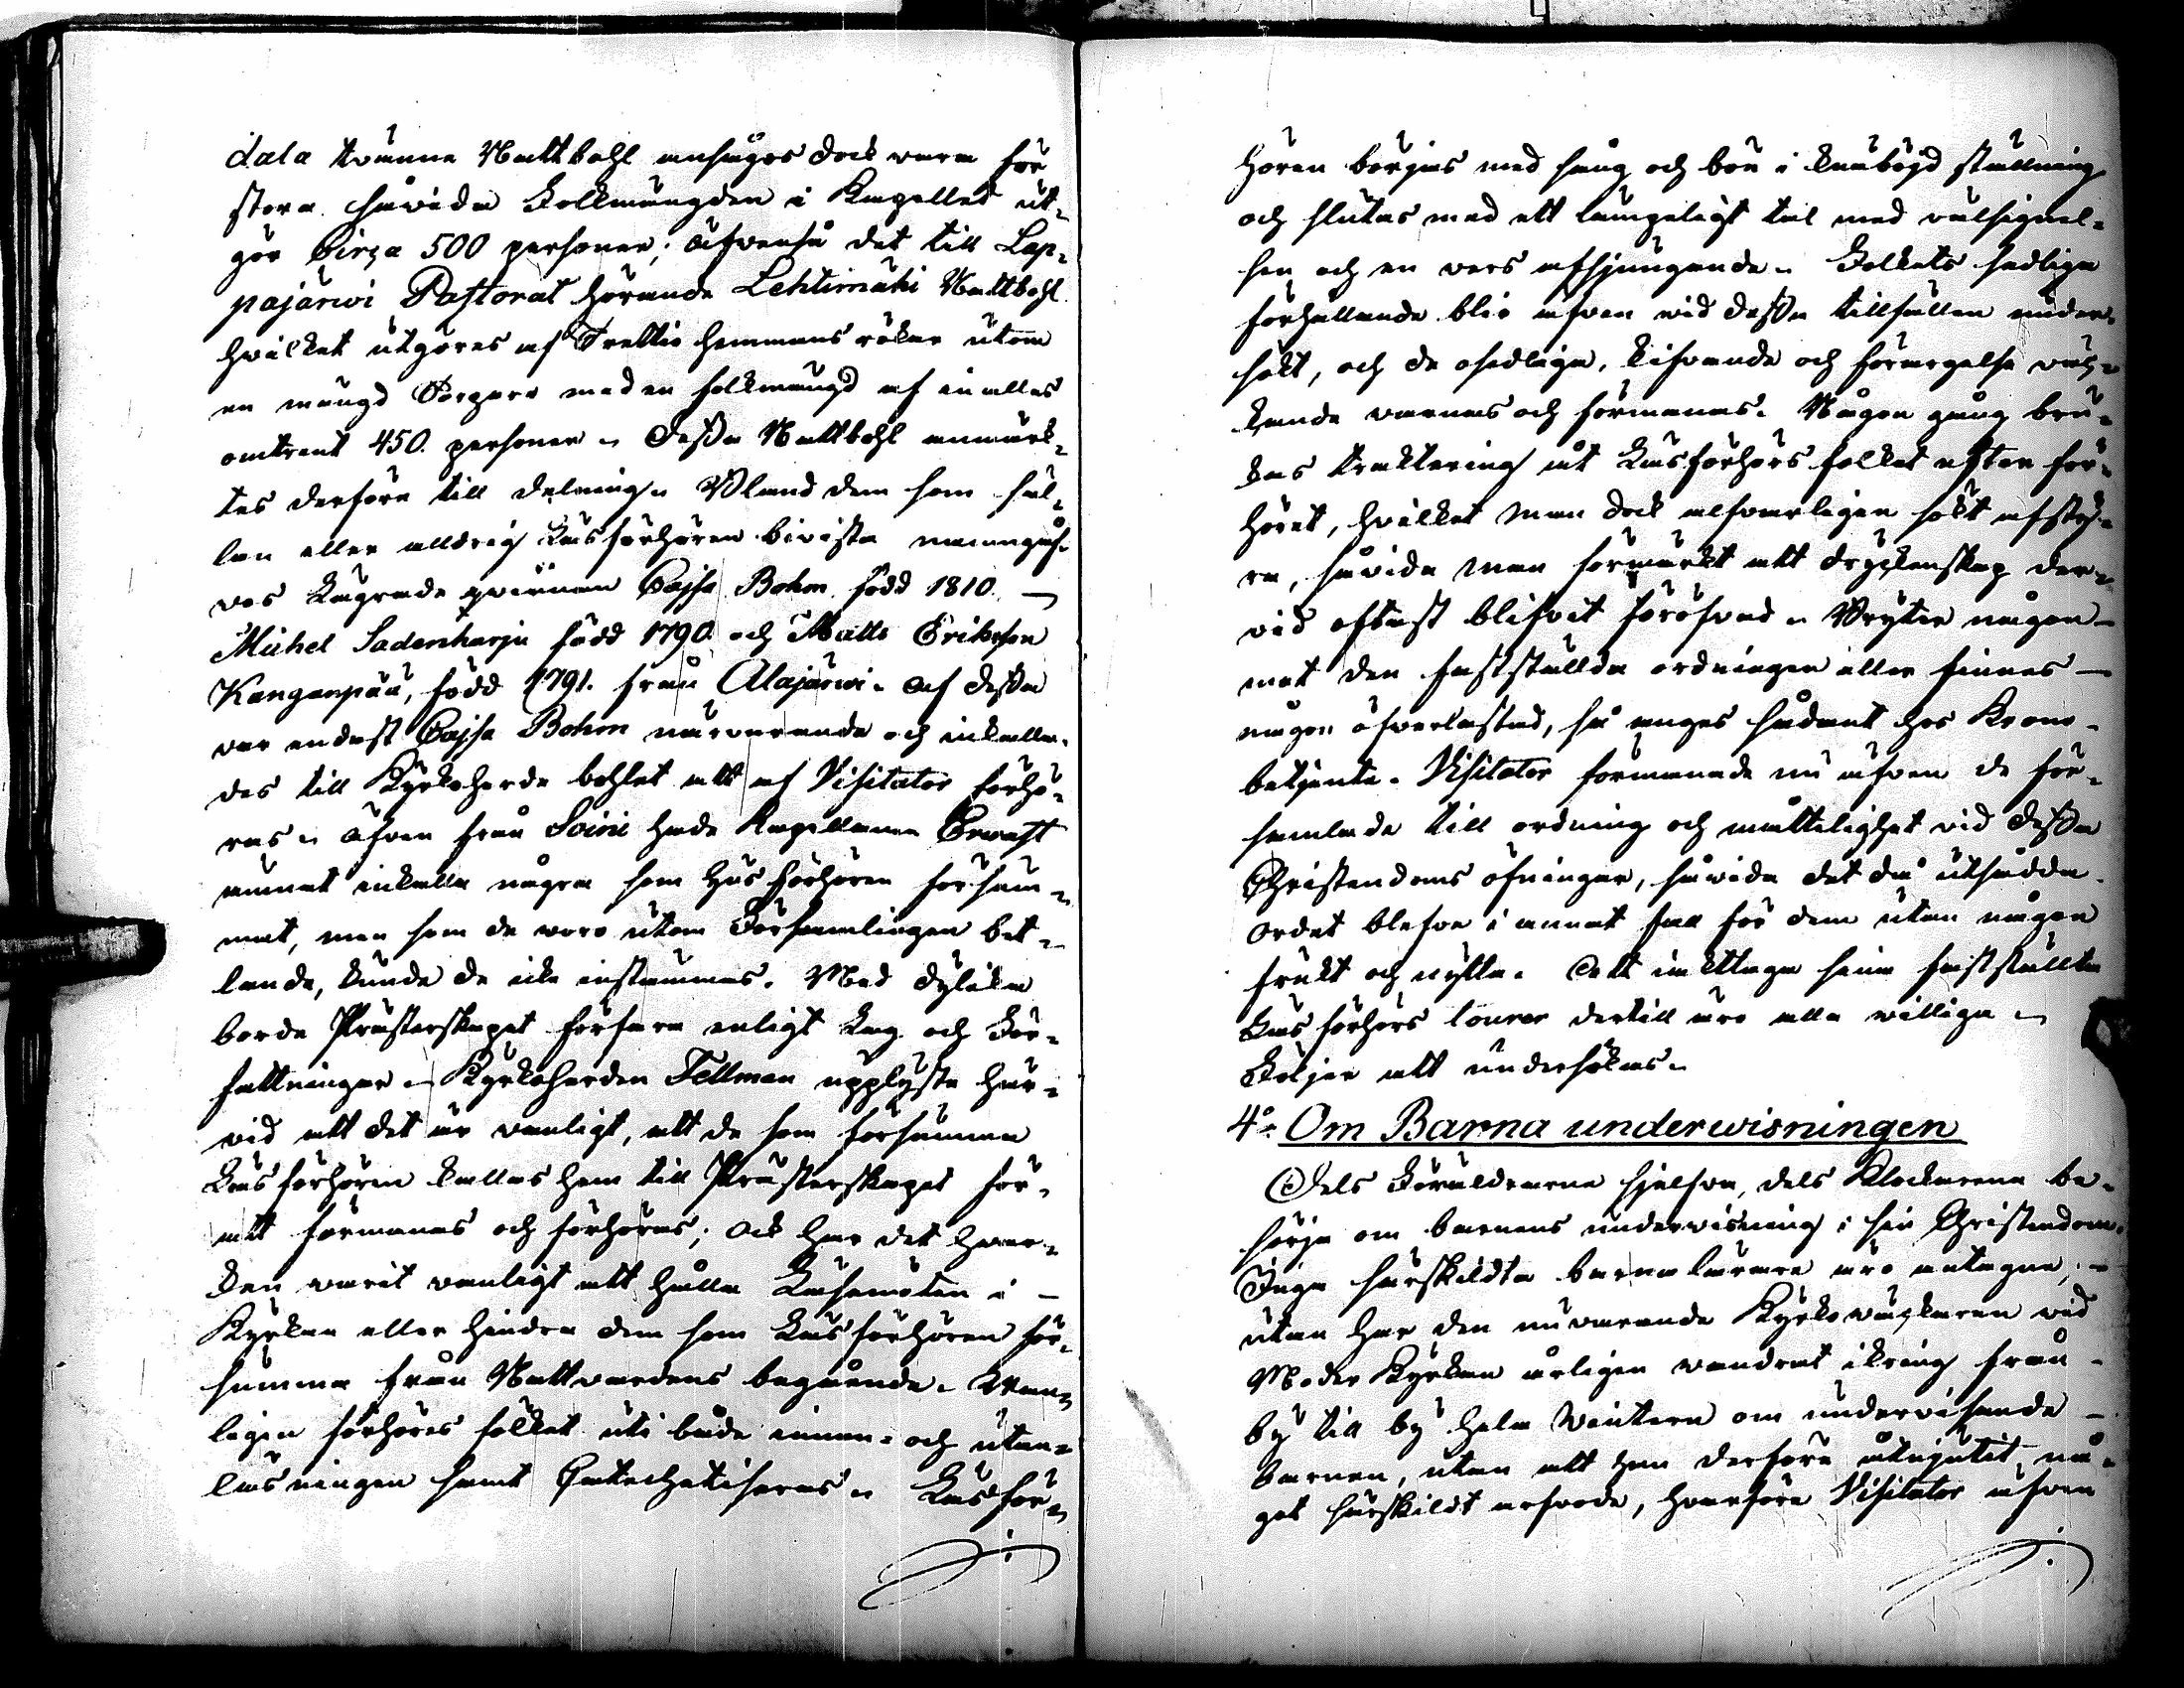 dala tvänne Nattbohl ansåges dock vara för
stora såvida Folkmängden i Kapellet ut-
gör Circa 500 personer; äfvenså det till Lap-
pajärwi Pastorat hörande Lehtimäki Nattbohl
hvilket utgöres af Trettio hemmans rökar utom
en mängd Torpare med en folkmängd af in alles
omtrent 450. personer. Dessa Nattbohl anmärk-
tes derföre till delning. Bland dem som säl-
lan eller alldrig Läsförhören bivista namngåf-
vos Lägrade qvinnan Cajsa Bohm född 1810. —
Michel Sadenharju född 1790. och Matts Eriksson
Kangarpää, född 1791. från Alajärwi. af dessa
var endast Cajsa Bohm närvarande och inkalla-
des till Kyrkoherde bohlet att af Visitator förhö-
ras. äfven från Soini hade Kapellanen Erwast
ämnat inkalla några som Läsförhören försum-
mat, men som de voro utom Församlingen bet-
lande, kunde de icke instämmas. Med dylika
borde Presterskapet förfara enligt Lag och För-
fattningar. Kyrkoherden Fellman upplyste här-
vid att det är vanligt, att de som försumma
Läsförhören kallas hem till Presterskapet för
att förmanas och förhöras; Ock har det hvar-
ken varit vanligt att hålla Läsemöten i —
Kyrkan eller hindra dem som Läsförhören för-
summa från Nattvardens begående. Van-
ligen förhöres folket uti både innan- och utan-
läsningen samt Catechetiseras. Läsför-
hören börjas med sång och bön i knäböjd ställning
och slutas med ett lämpeligt tal med välsignel-
sen och en vers afsjungande. Folkets sedliga
förhållande blir äfven vid dessa tillfällen under-
sökt, och de osedliga, kifvande och förargelse väc-
kande varnas och förmanas. Någon gång bru-
kas traktering åt Läsförhörs folket efter för-
höret, hvilket man dock alfvarligen sökt afsty-
ra, såvida man förmärkt att dryckenskap der-
vid oftast blifvit föröfvad. Bryter någon —
mot den fastställda ordningen eller finnes —
någon öfverlastad, så anges sådant hos Krono-
betjente. Visitator förmanade nu äfven de för-
samlade till ordning och måttelighet vid dessa
Christendoms öfningar, såvida det då utsådda
Ordet blefve i annat fall för dem utan någon
frukt och nytta. Att intaga sina fastställta
Läsförhörs tourer dertill äro alla villiga
Följer att undersökas.
4o. Om Barna underwisningen
Dels Föräldrarne sjelfva, dels Klockarena be-
sörja om barnens undervisning i sin Christendom.
Inga särskildta barnalärare äro antagne, —
utan har den nuvarande Kyrkoväcktaren vid
Moder Kyrkan årligen vandrat ikring från —
by till by hela Vintern om undervisande —
barnen, utan att han derföre åtnjutit nå-
got särskildt arfvode, hvarföre Visitator äfven